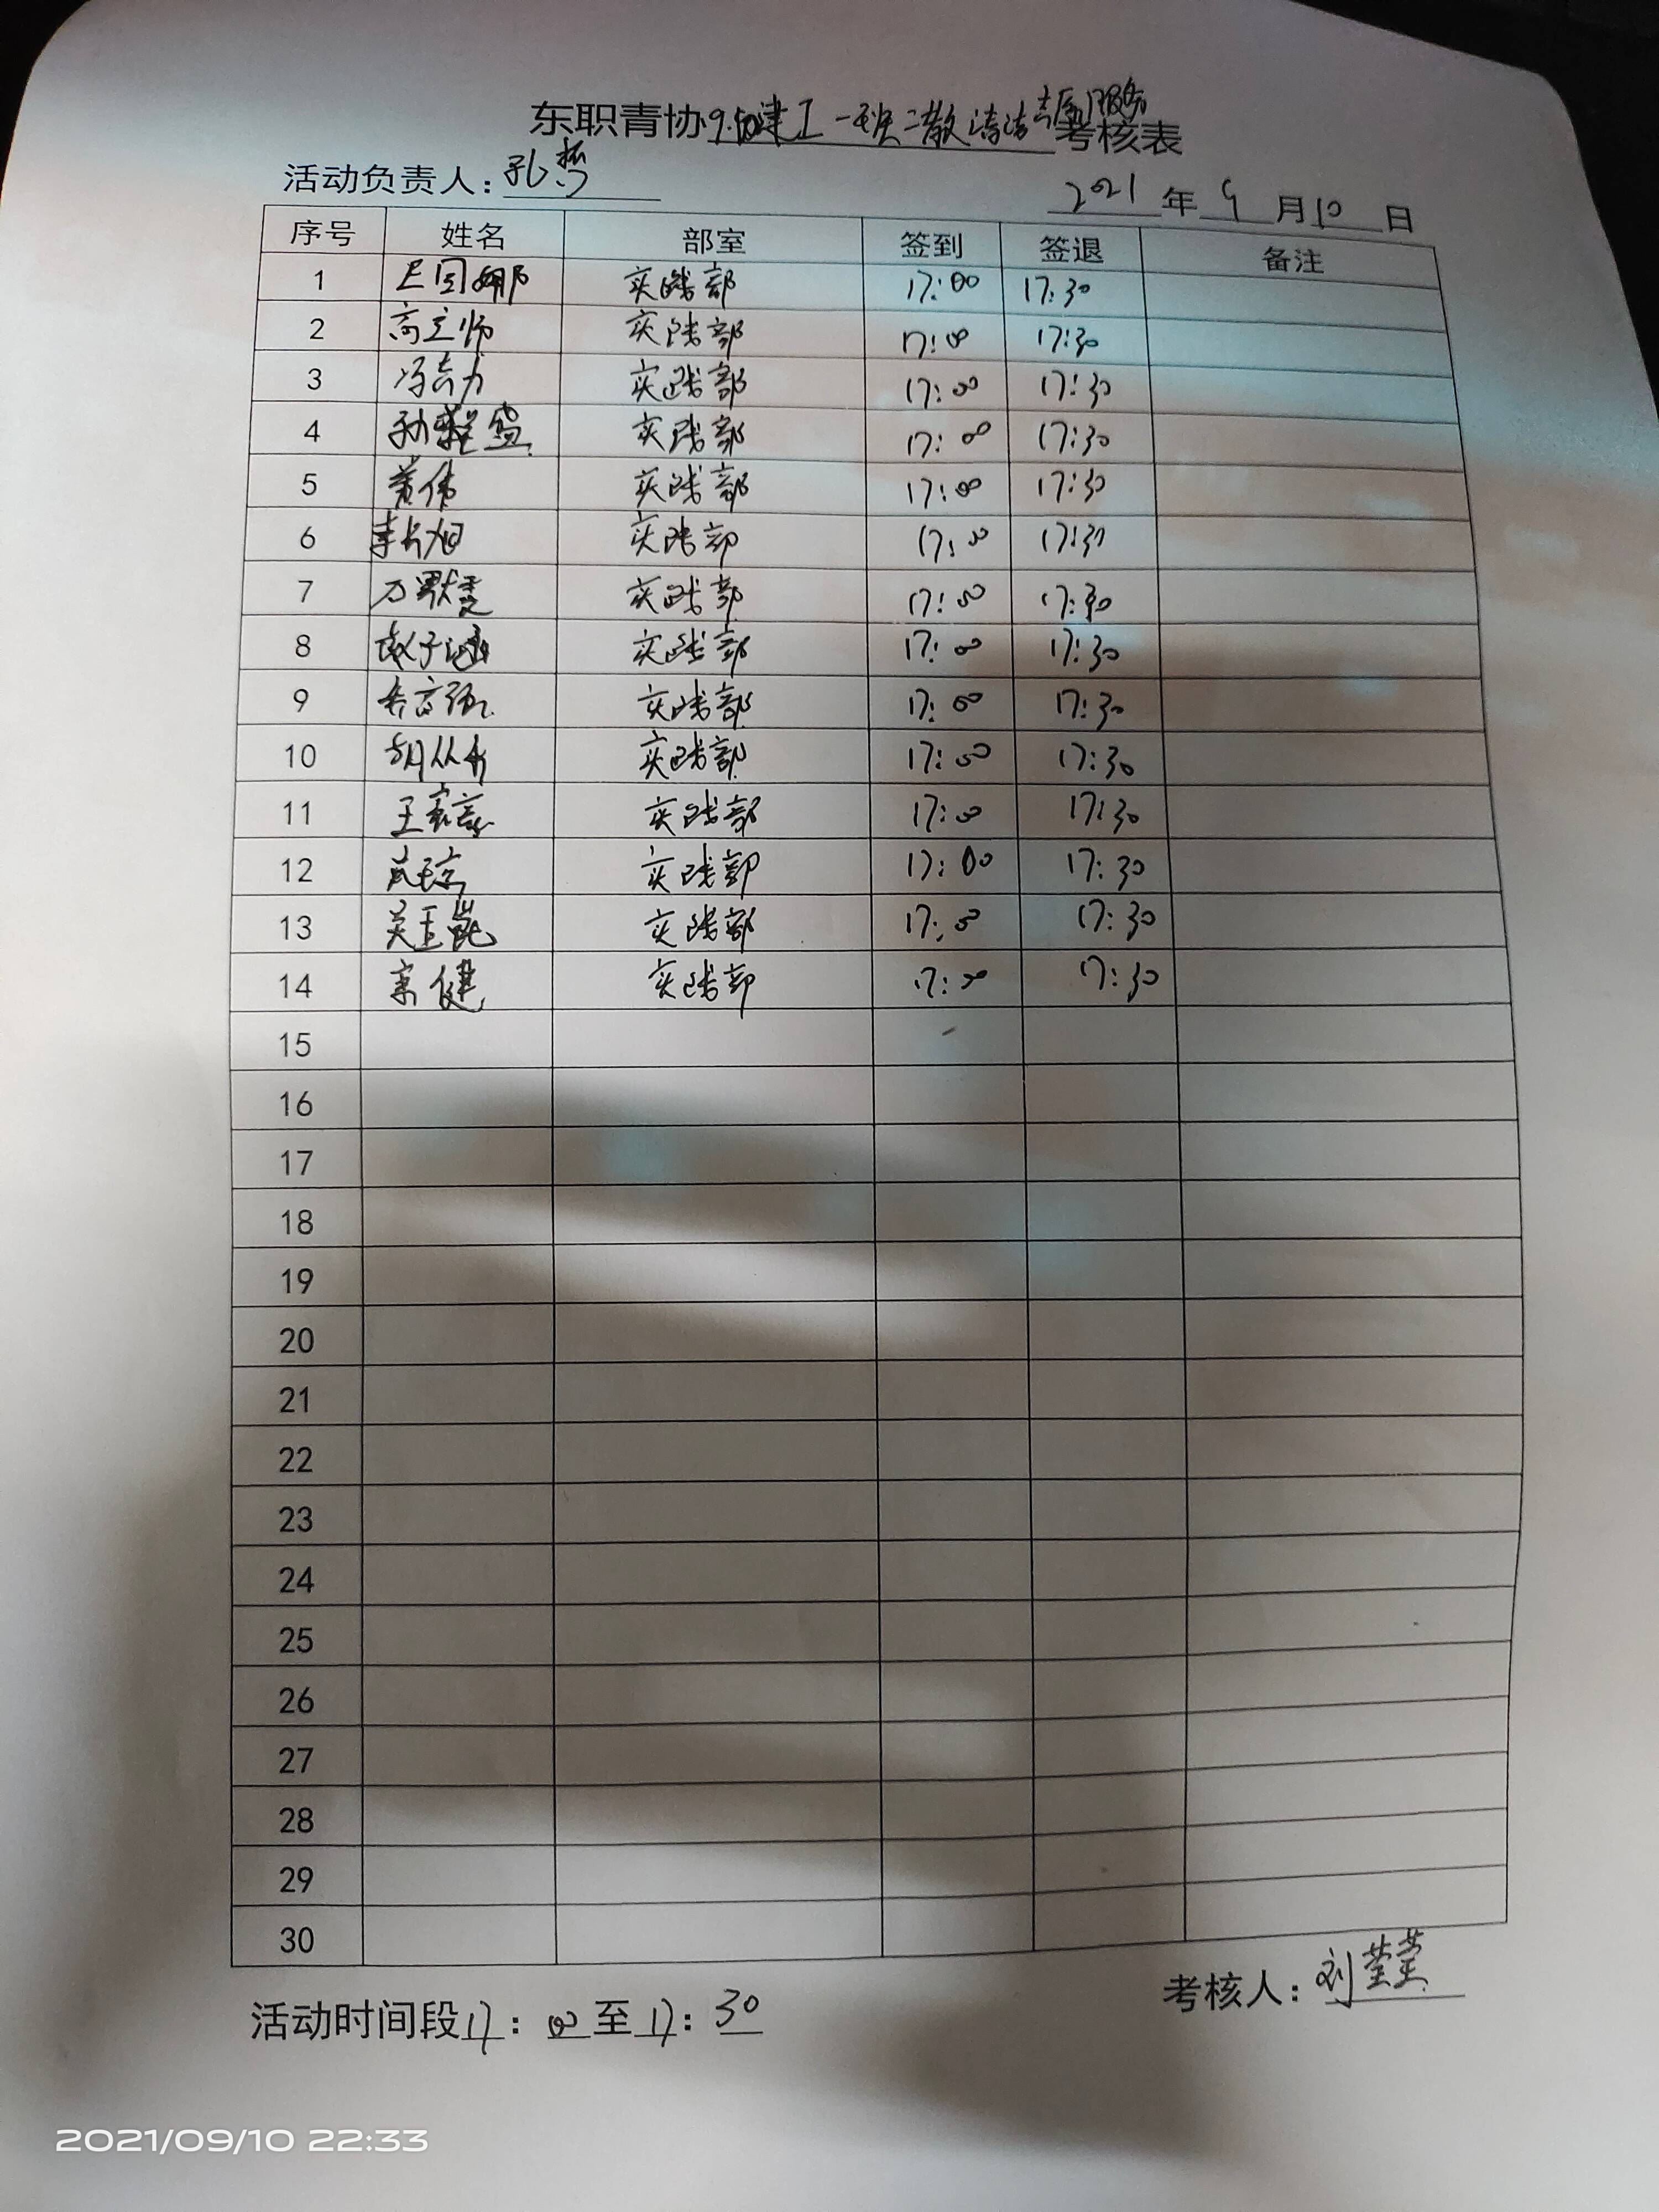 东职青协9.10建工一块二散清洁志愿服务考核表
活动负责人：孔梦
2021年9月10日
序号 姓名 部室 签到 签退 备注
1 实践部 17:00 17:30
2 高立师 实践部 17:00 17:30
3 冯吉力 实践部 17:00 17:30
4 孙 实践部 17:00 17:30
5 黄伟 实践部 17:00 17:30
6 李长旭 实践部 17:00 17:30
7 万默 实践部 17:00 17:30
8 子涵 实践部 17:00 17:30
9 实践部 17:00 17:30
10 胡从 实践部 17:00 17:30
11 王 实践部 17:00 17:30
12 实践部 17:00 17:30
13 吴玉 实践部 17:00 17:30
14 健 实践部 17:00 17:30
15
16
17
18
19
20
21
22
23
24
25
26
27
28
29
30
考核人：刘莹莹
活动时间段17：00至17：30
2021/09/10 22:33